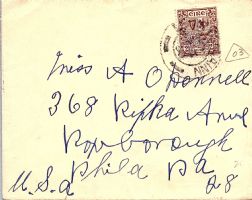 ÉIRE
03
Miss A O'Donnell
368 Ripka Ave
Roxborough
Phila Pa
U.S.a 28